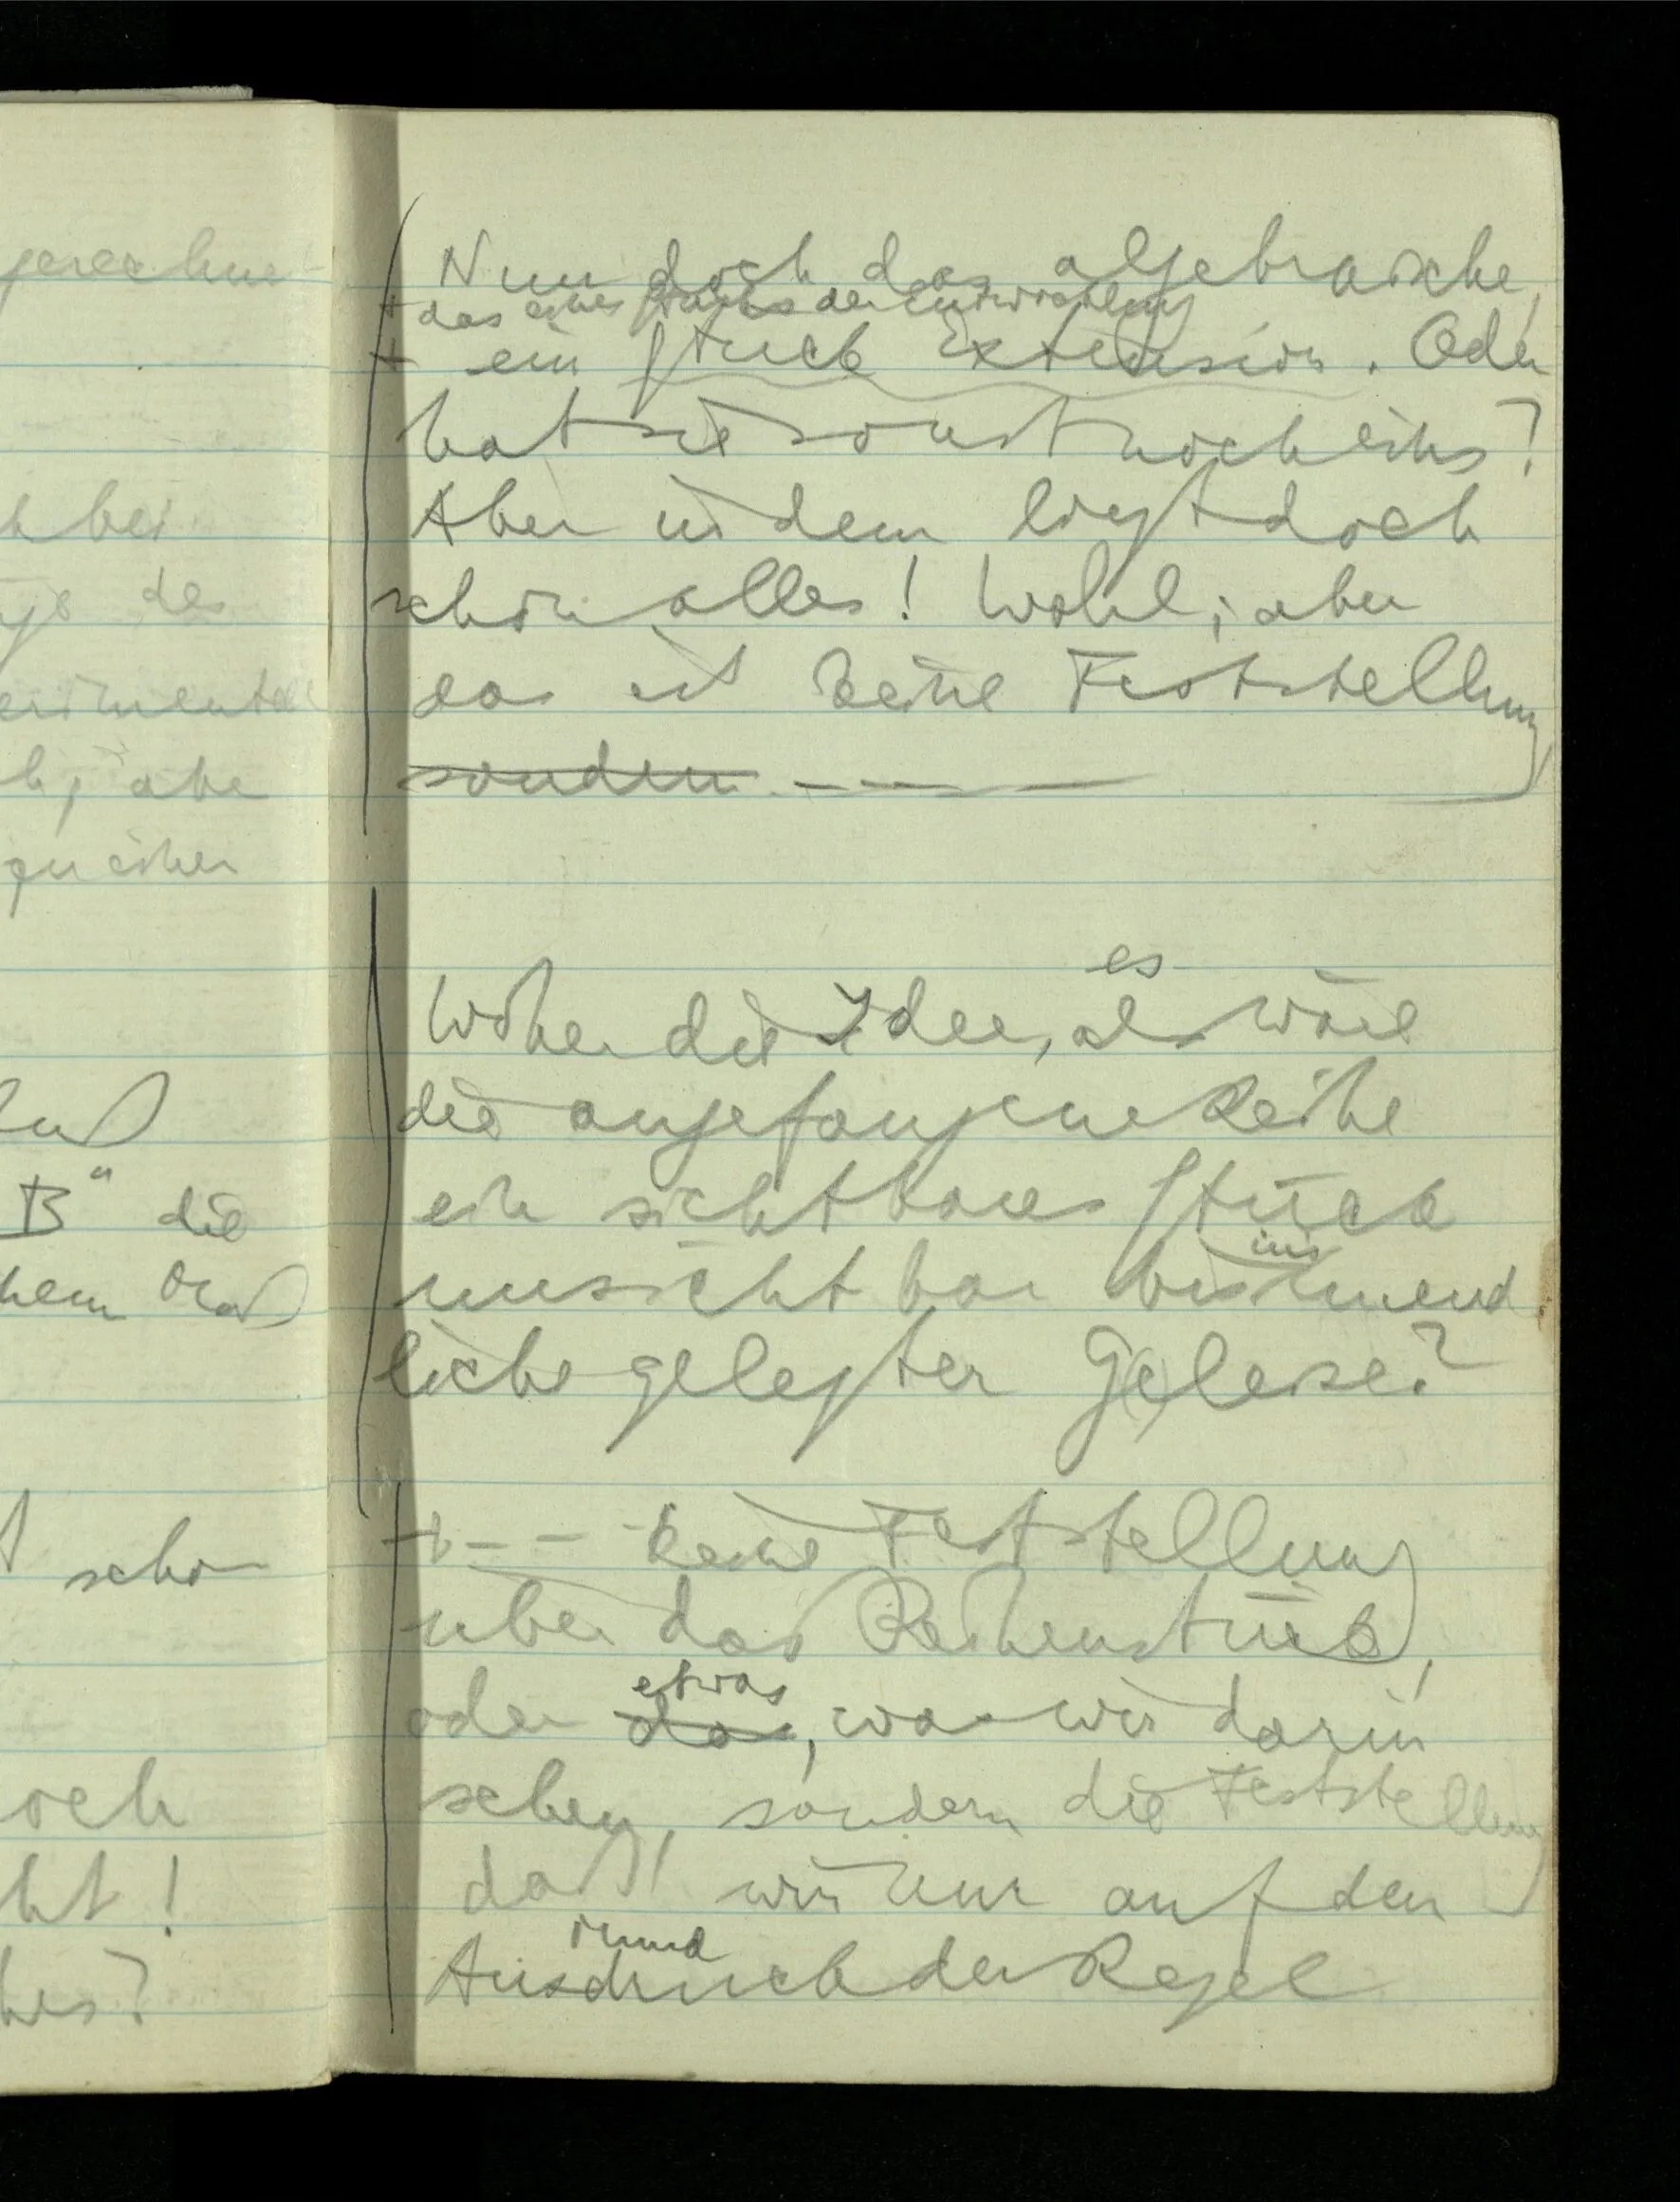 gerechne
h bei
des
erimentell
h, aber
zu einer
daß
B" die
hem daß
schon
och
ht!
hes?
Nun doch das algebraische,
+ das eines Stücks der Entwicklung
+ ein Stück Extension. Oder
hat sie sonst noch eins?
Aber in dem liegt doch
schon alles! Wohl; aber
das ist keine Feststellung
sondern – – –
es
Woher die Idee, als wäre
die angefangene Reihe
ein sichtbares Stück
ins
unsichtbar bis ins unend
liche gelegter Geleise?
+ – – keine Feststellung
über das Reihenstück,
etwas
oder das, was wir darin
sehen, sondern die Feststellung
daß wir nur auf den
mund
Ausdruck der Regel